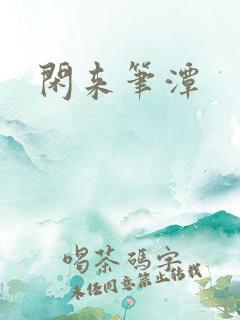 閑来筆潭
喝茶碼字
未经同意禁止转载